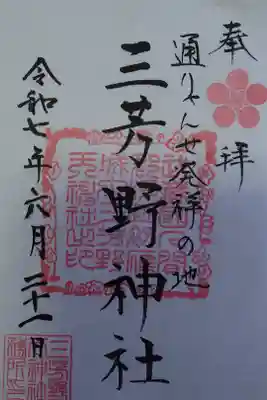 奉拝
通りゃんせ発祥の地
三芳野神社
令和七年六月二十一日